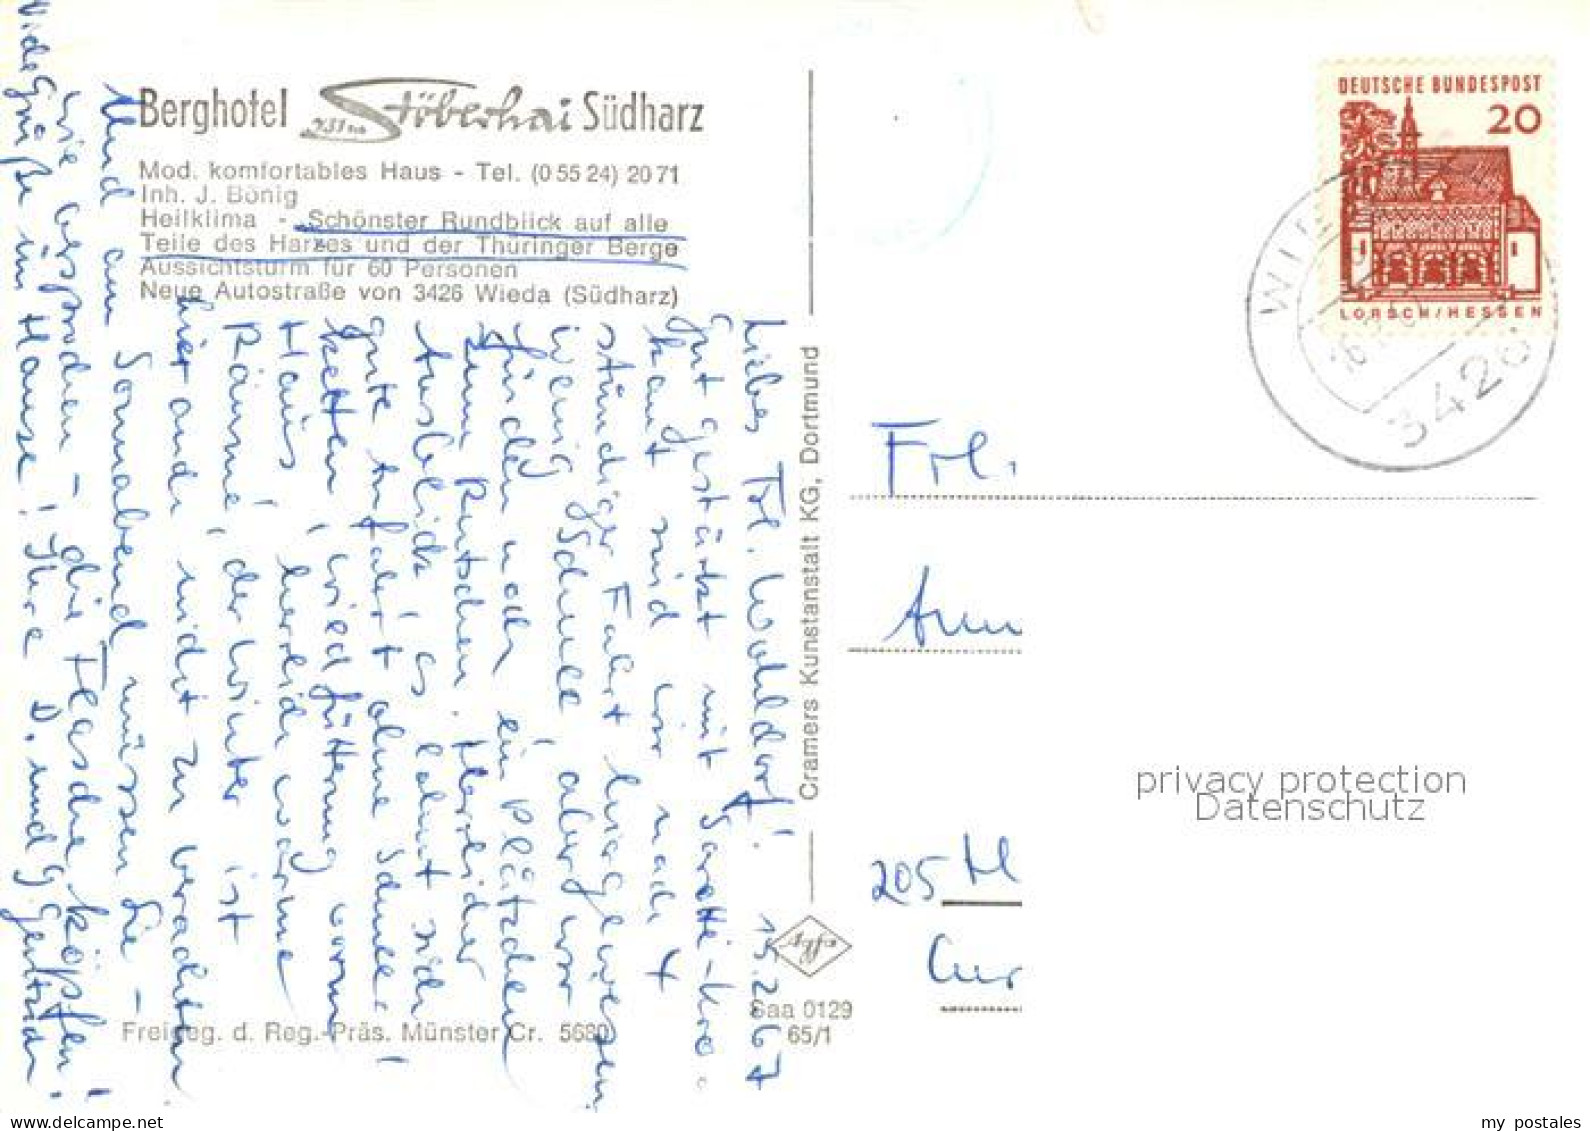 Berghotel 731m Stöberhai Südharz
Mod. komfortables Haus - Tel. (0 55 24) 20 71
Inh. J. Bönig
Heilklima - Schönster Rundblick auf alle
Teile des Harzes und der Thüringer Berge
Aussichtsturm für 60 Personen
Neue Autostraße von 3426 Wieda (Südharz)
15.2.67
Liebes Frl. Wohldorf!
Gut gestärkt mit Sarotti-
kamt sind wir nach 4
stündiger Fahrt hier gewesen.
Wenig Schnee, aber wir
finden noch ein Plätzchen
zum Rutschen. Herrlicher
Ausblick, es lohnt sich
gute Anfahrt ohne Schnee-
ketten, Wildfütterung vorm
Haus, herrlich warme
Räume, der Winter ist
hier auch nicht zu verachten
Und am Sonnabend müssen Sie -
wie besprochen - die Flasche köpfen!
Viele Grüße im Hause! Ihre D. und G.
Cramers Kunstanstalt KG, Dortmund
Freigeg. d. Reg.-Präs. Münster Cr. 5680
Saa 0129
65/1
DEUTSCHE BUNDESPOST
20
LORSCH/HESSEN
3426
Frl.
205
privacy protection
Datenschutz
my postales